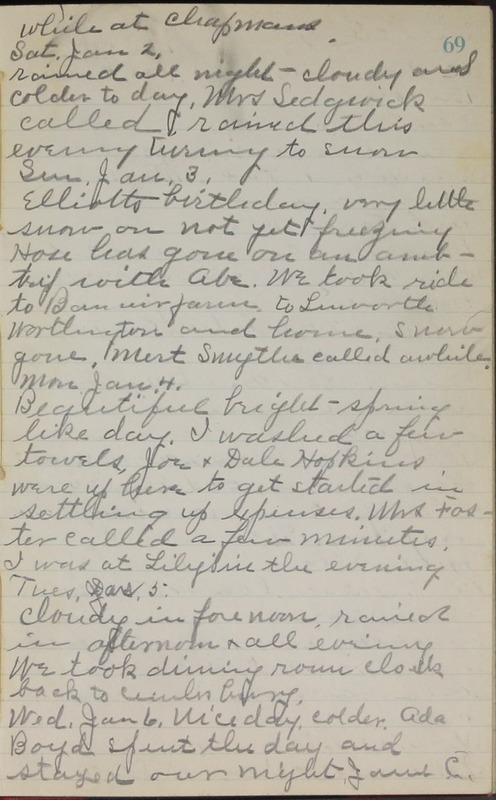 while at Chapmans
69
Sat. Jan 2,
rained all night - cloudy and
colder to day, Mrs Sedgwick
called, rained this
evening turning to snow
Sun. Jan. 3,
Elliotts birthday, very little
snow on not yet freezing
Hose has gone on an amb-
trip with Abe. We took ride
to farm to Linworth
Worthington and home, snow
gone, Mert Smythe called awhile.
Mon. Jan. 4.
Beautiful bright - spring
like day. I washed a few
towels, Joe & Dale Hopkins
were up here to get started in
settling up expenses. Mrs Fos-
ter called a few minutes.
I was at Lilys in the evening
Tues, Jan, 5:
cloudy in forenoon, rained
in afternoon & all evening
We took dining room clock
back to
Wed. Jan 6. Nice day, colder. Ada
Boyd spent the day and
stayed over night, J and C.